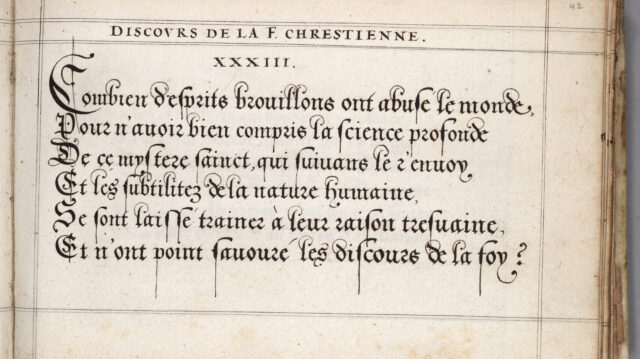 92
DISCOVRS DE LA F. CHRESTIENNE.
XXXIII.
Combien d'esprits brouillons ont abuse le monde,
Pour n'auoir bien compris la science profonde
De ce mystere sainct, qui suiuans le r'enuoy,
Et les subtilitez de la nature humaine,
Se sont laissé trainer à leur raison tresuaine,
Et n'ont point sauouré les discours de la foy?